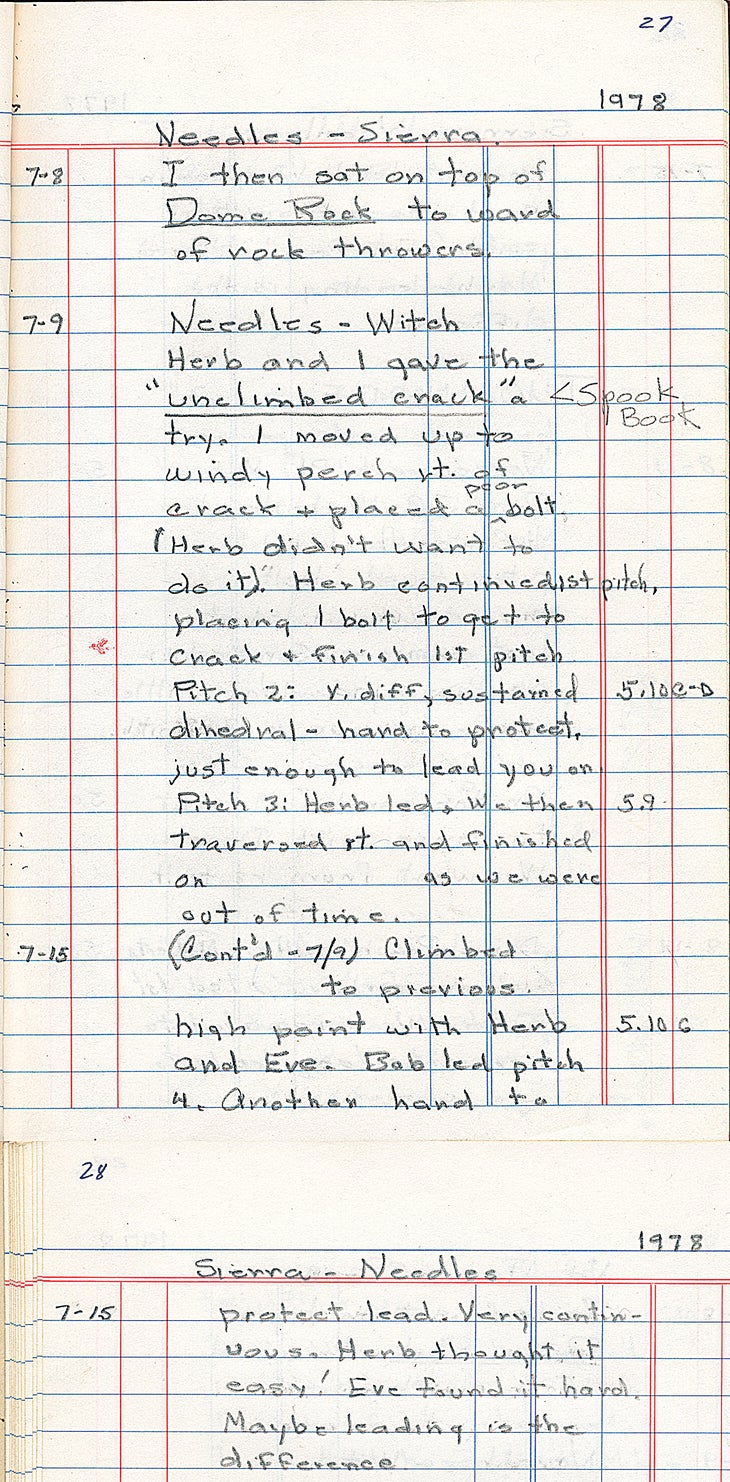 27
1978
Needles - Sierra.
7-8 I then sat on top of
Dome Rock to ward
of rock throwers.
7-9 Needles - Witch
Herb and I gave the
"unclimbed crack" a < Spook Book
try. I moved up to
windy perch rt. of
crack + placed a poor bolt.
(Herb didn't want to
do it). Herb continued 1st pitch,
placing 1 bolt to get to
crack + finish 1st pitch
Pitch 2: V. diff, sustained 5.10C-D
dihedral - hard to protect,
just enough to lead you on.
Pitch 3: Herb led. We then 5.9
traversed rt. and finished
on as we were
out of time.
7-15 (Cont'd - 7/9) Climbed
to previous
high point with Herb 5.10 C
and Eve. Bob led pitch
4. Another hand to
28
1978
Sierra - Needles
7-15 protect lead. Very contin-
uous. Herb thought it
easy! Eve found it hard.
Maybe leading is the
difference